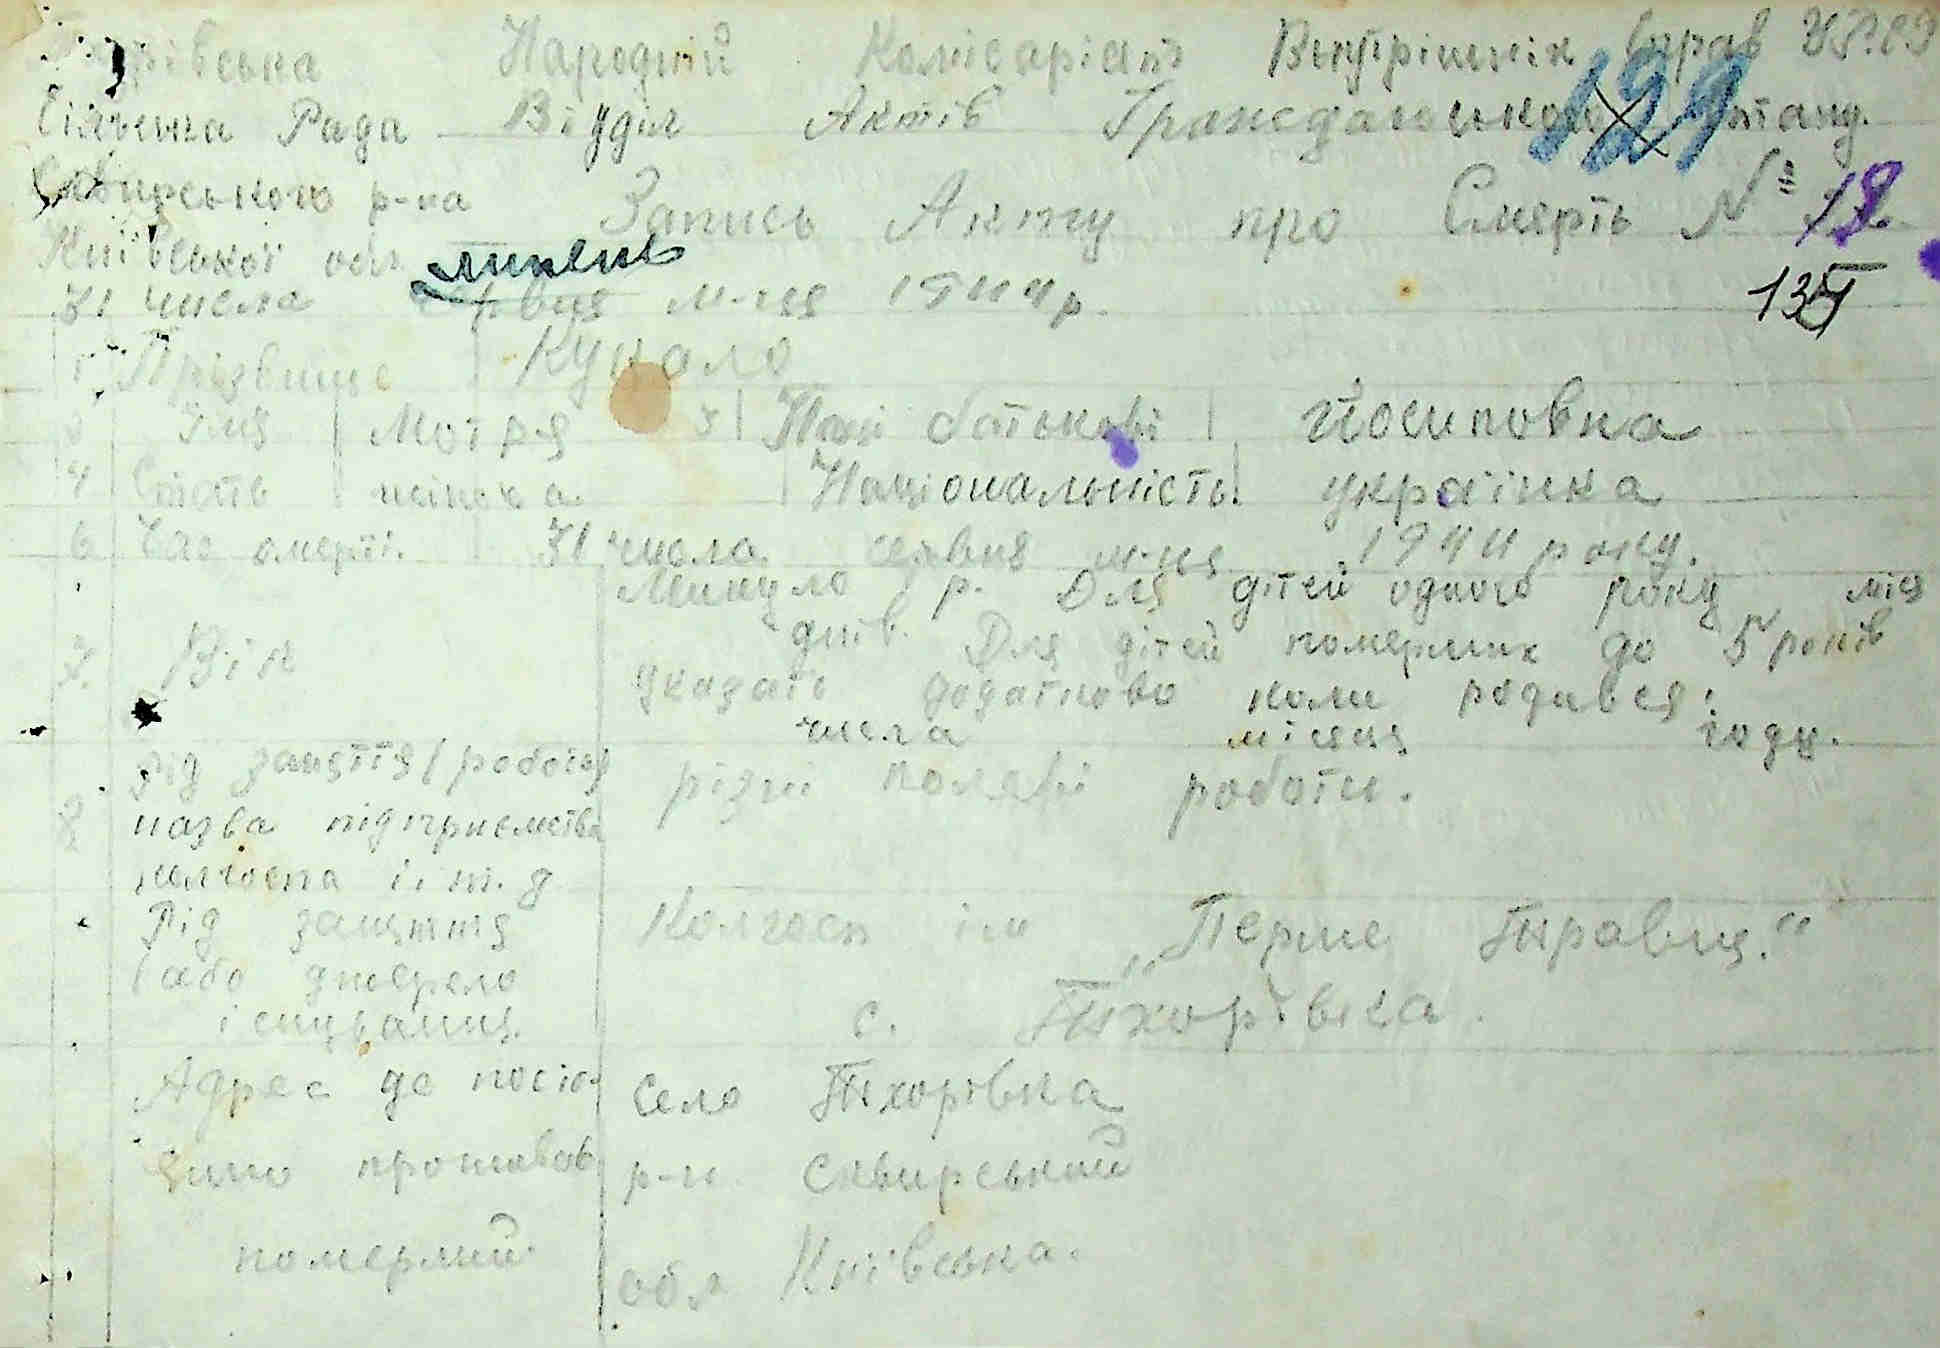 Тхорівська Народний Комісаріат Внутрішніх Справ УРСР
Сільська Рада Відділ Актів Гражданського Стану.
129
Сквирського р-на
Запись Акту про Смерть № 18
Київської обл.
липень
31 числа м-ця 1944 р.
13
1 Прізвище Кукало
2 Імя Мотря 3 По батькові Йосиповна
4 Стать жінока Національність українка
6 Час смерті. 31 числа серпня м-ця 1944 року.
Минуло р. Для дітей одного року міся
днів. Для дітей померших до 5 років
7. Вік
указати додатково коли родився:
числа місяця году.
рід заняття (робота)
різні польові роботи.
8 назва підприємства
колгоспа і т. д
Рід заняття
Колгосп ім „Перше Травня."
(або джерело
існування.
с. Тхорівка.
Адрес де постію- село Тхорівка
янно проживав р-н Сквирський
померший. обл Київська.